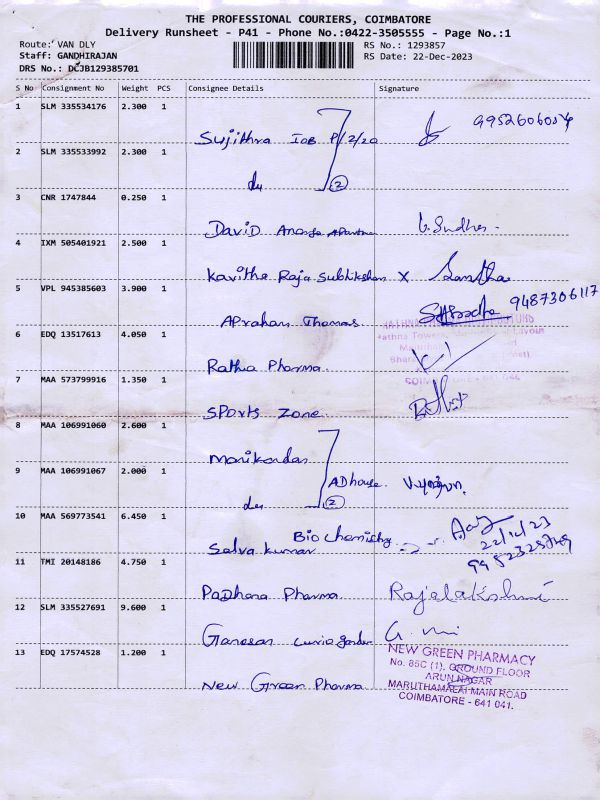 THE PROFESSIONAL COURIERS, COIMBATORE
Delivery Runsheet - P41 - Phone No.:0422-3505555 - Page No.:1
Route: VAN DLY
Staff: GANDHIRAJAN
DRS No.: DCJB129385701
RS No.: 1293857
RS Date: 22-Dec-2023
S No Consignment No Weight PCS Consignee Details Signature
1 SLM 335534176 2.300 1
Sujithra IOB P/2/20 9952606054
2 SLM 335533992 2.300 1
du 2
3 CNR 1747844 0.250 1
David
4 IXM 505401921 2.500 1
Kavitha Raja Subhikshan X
5 VPL 945385603 3.900 1
Aprahan Thomas 9487306117
6 EDQ 13517613 4.050 1
Rathia Pharma
7 MAA 573799916 1.350 1
SPorts Zone
8 MAA 106991060 2.600 1
Manikandan
9 MAA 106991067 2.000 1
du ADhouse 2
10 MAA 569773541 6.450 1
Selva kumar Bio chemistry 22/12/23
11 TMI 20148186 4.750 1
Padhana Pharma Rajalakshmi
12 SLM 335527691 9.600 1
Ganesan
13 EDQ 17574528 1.200 1
New Green Pharma
NEW GREEN PHARMACY
No. 85C (1), GROUND FLOOR
ARUN NAGAR
MARUTHAMALAI MAIN ROAD
COIMBATORE - 641 041.